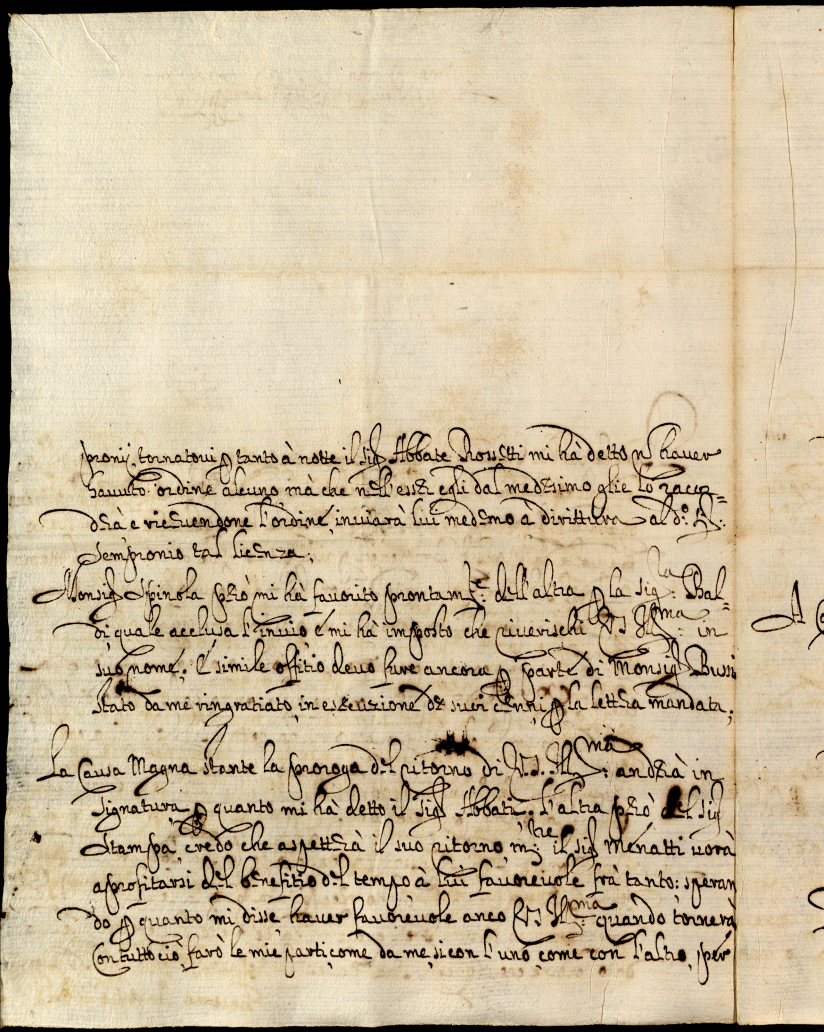 pronij, tornatovi p tanto à notte il Sig Abbate Rossetti mi hà detto n haver
havuto ordine alcuno mà che nell'esser egli dal medesimo glie lo
derà e ricevendone l'ordine, inviarà lui medemo à dirittura al d.º
Sempronio tal licenza;
Monsig Spinola però mi hà favorito prontam.te dell'altra p la Sig.ra Bal=
di quale acclusa l'invio e mi hà imposto che riverischi V.S. Ill.ma in
suo nome, e simile offitio devo fare ancora p parte di Monsig Bussi
stato da me ringratiato in essecuzione de suoi cenni p la lettera mandata;
La Causa Magna stante la proroga del ritorno di V.S. Ill.ma andrà in
Signatura p quanto mi hà detto il Sig Abbati, l'altra però del Sig
Stampa credo che aspetterà il suo ritorno m.re il Sig Menatti vorà
aprofitarsi del benefitio del tempo à lui favorevole frà tanto: speran
do p quanto mi disse haver favorevole anco V.S. Ill.ma quando tornerà
Con tutto ciò farò le mie parti come da me, si con l'uno come con l'altro, per